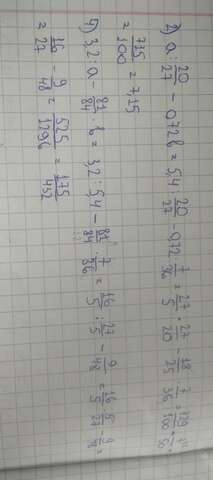 2) a : 20/27 - 0,72b = 5,4 : 20/27 - 0,72 · 7/36 = 27/5 · 27/20 - 18/25 · 7/36 =
= 715/100 = 7,15
4) 3,2 : a - 81/84 · b = 3,2 : 5,4 - 81/84 · 7/36 = 16/5 : 27/5 - 9/48 = 16/5 · 5/27 - 9/48 =
= 16/27 - 9/48 = 525/1296 = 175/432